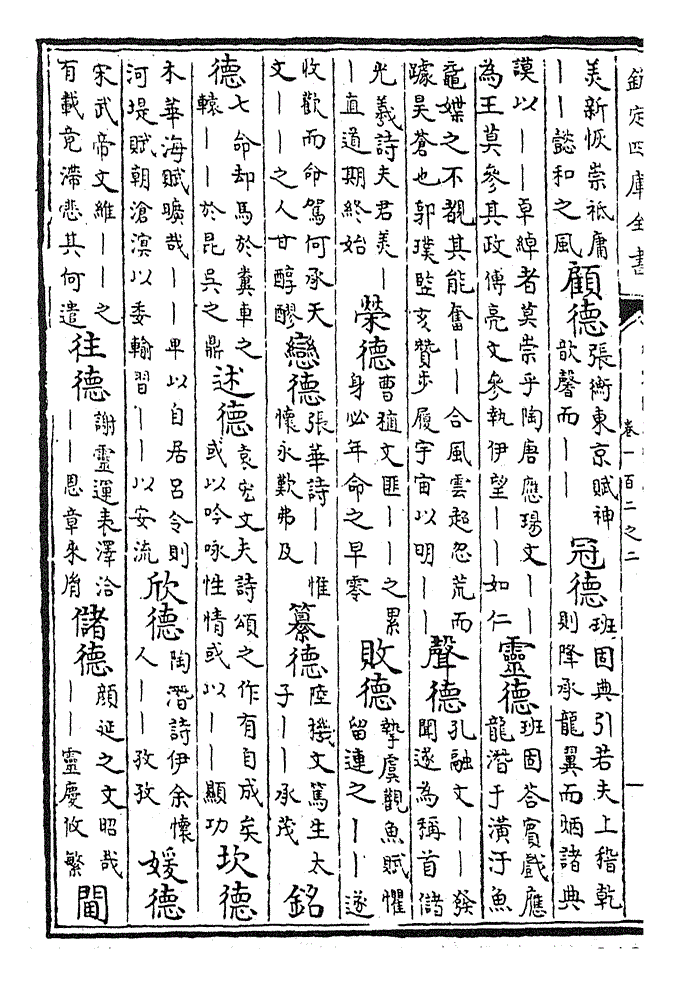 欽定四庫全書　卷一百二之二
美新恢崇祗庸――懿和之風顧德張衡東京賦神歆馨而――冠德班固典引若夫上稽乾則降承龍翼而炳諸典
謨以――卓綽者莫崇乎陶唐應瑒文――為王莫參其政傅亮文參執伊望――如仁靈德班固答賓戲應龍潛于潢汙魚
黿媟之不覩其能奮――合風雲超忽荒而躆昊蒼也郭璞監亥贊步履宇宙以明――聲德孔融文――發聞遂為稱首儲
光羲詩夫君美――直道期終始榮德曹植文匪――之累身必年命之早零敗德摯虞觀魚賦懼留連之――遂
收歡而命駕何承天文――之人甘醇醪戀德張華詩――惟懷永歎弗及纂德陸機文篤生太子――承茂銘
德七命却馬於糞車之轅――於昆吳之鼎述德袁宏文夫詩頌之作有自成矣或以吟咏性情或以――顯功坎德
木華海賦曠哉――卑以自居呂令則河堤賦朝滄溟以委輸習――以安流欣德陶潛詩伊余懷人――孜孜媛德
宋武帝文維――之有載竟滯悲其何遣往德謝靈運表澤洽――恩章來胤儲德顏延之文昭哉――靈慶攸繁閫